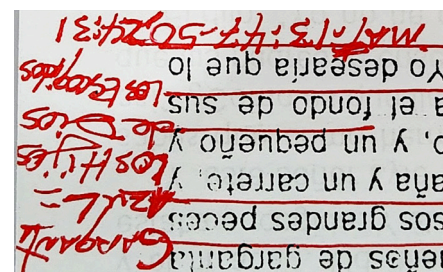 ueños de garganta GARGANTA
sos grandes peces AZUL =
aña y un carrete, y Los Hijos
o, y un pequeño y de Dios
a el fondo de sus Los Escogidos
Yo desearía que lo
MAT-13:47-50, 24:31